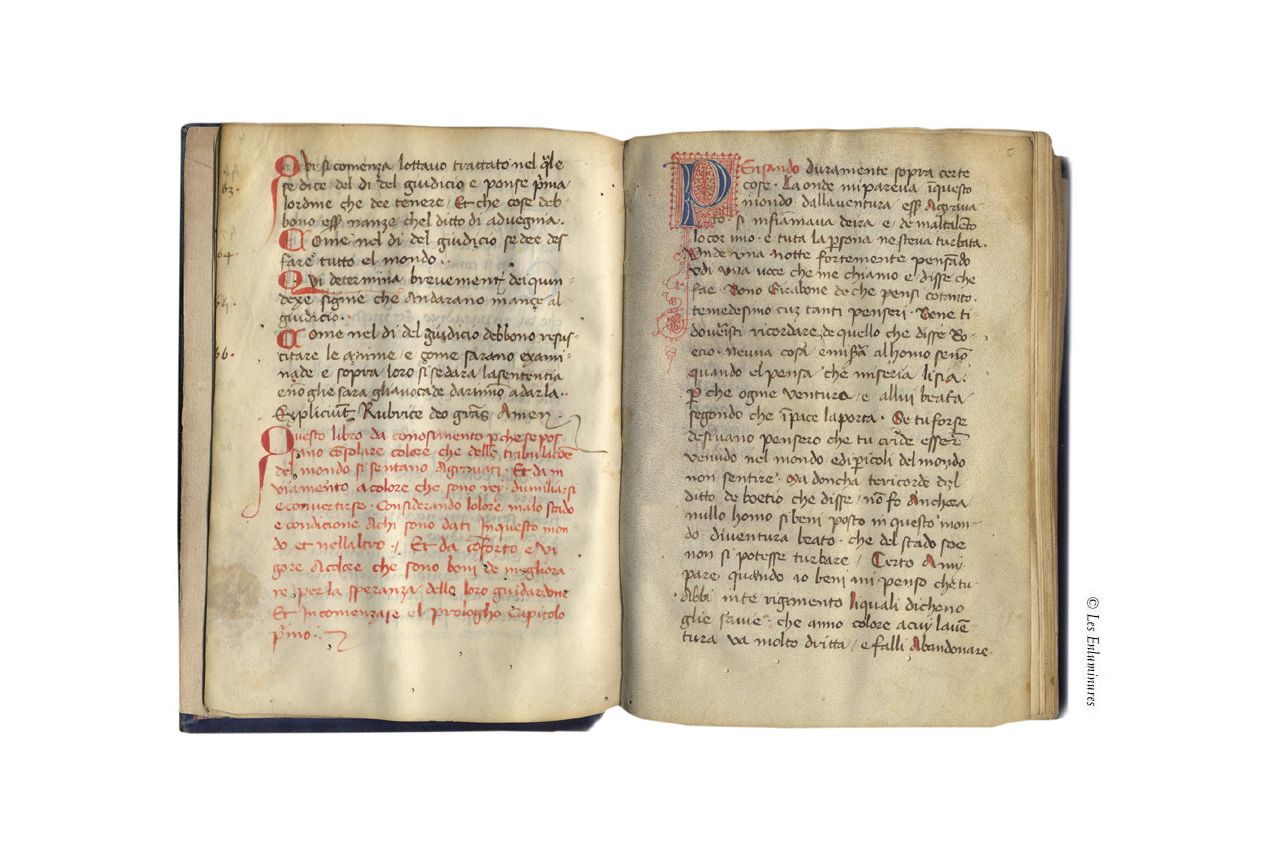 Q vi si comenza lottauo trattato nel q̃le
63.
se dice del di del giudicio e ponse p̃ma
lordine che dee tenere. Et che cose deb-
bono ess̃ inanze chel ditto di aduegnia.
Come nel di del giudicio se dee des
64.
fare tutto el mondo.
Qvi determina brevement̃ dei quin-
dexe signe che andarano inanze al
giudicio.
Come nel di del giudicio debbono resus-
66.
citare le anime / e gome sarano exami-
nade e sopira loro si sedara la sententia
Expliciunt̃ Rubrice deo grãs Amen
Questo libro da conosimento p̃ che se pos-
sino cõsolare colore che delle tribulatiõe
del mondo si sentano Agrivati. Et da in
viamento a colore che sono rey. dumiliarsi
e convertirse. Considerando lolore malo stado
e condicione Achi sono dati Inquesto mon
do et nellaltro. Et da cõforto e vi
gore A colore che sono boni de migliora
re per la speranza delle loro guidardone
Et Incomenzase el prologho Capitolo
p̃mo.
5
PEnsando duramente sopra certe
cose. La onde mi pareua ĩ questo
mondo dalla ventura / ess̃ Agrava
to. si infiamava deira e / de mal talẽto
lo cor mio. e tuta la p̃sona ne steva turbata.
Onde vna notte fortemente pensãdo
vdi vna voce che me chiamo e disse che
fae. Bono Girabone de che pensi cotanto.
te medesimo cuz tanti penseri. Bene ti-
doueristi ricordare de quello che disse Bo-
ecio. Neuna cosa e misĩa al homo senõ
quando el pensa che miseria li sia.
p̃ che ogne ventura / e allui beata
segondo che ĩ pace la porta. Se tu forse
desti vano pensero che tu cride esser̃
venudo nel mondo e di p̃icoli del mondo
non sentire. Ma doncha te ricorde del
ditto de boetio che disse / nõ fo Anchora
nullo homo si beni posto in questo mon-
do diventura beato. che del stado soe
non si potesse turbare / Certo A mi
pare quando io beni mi penso che tu
Abbi in te rigimento li quali dichono
glie savie. che anno colore a cui lavẽ
tura va molto dritta / e falli Abandonare.
© Les Enluminures